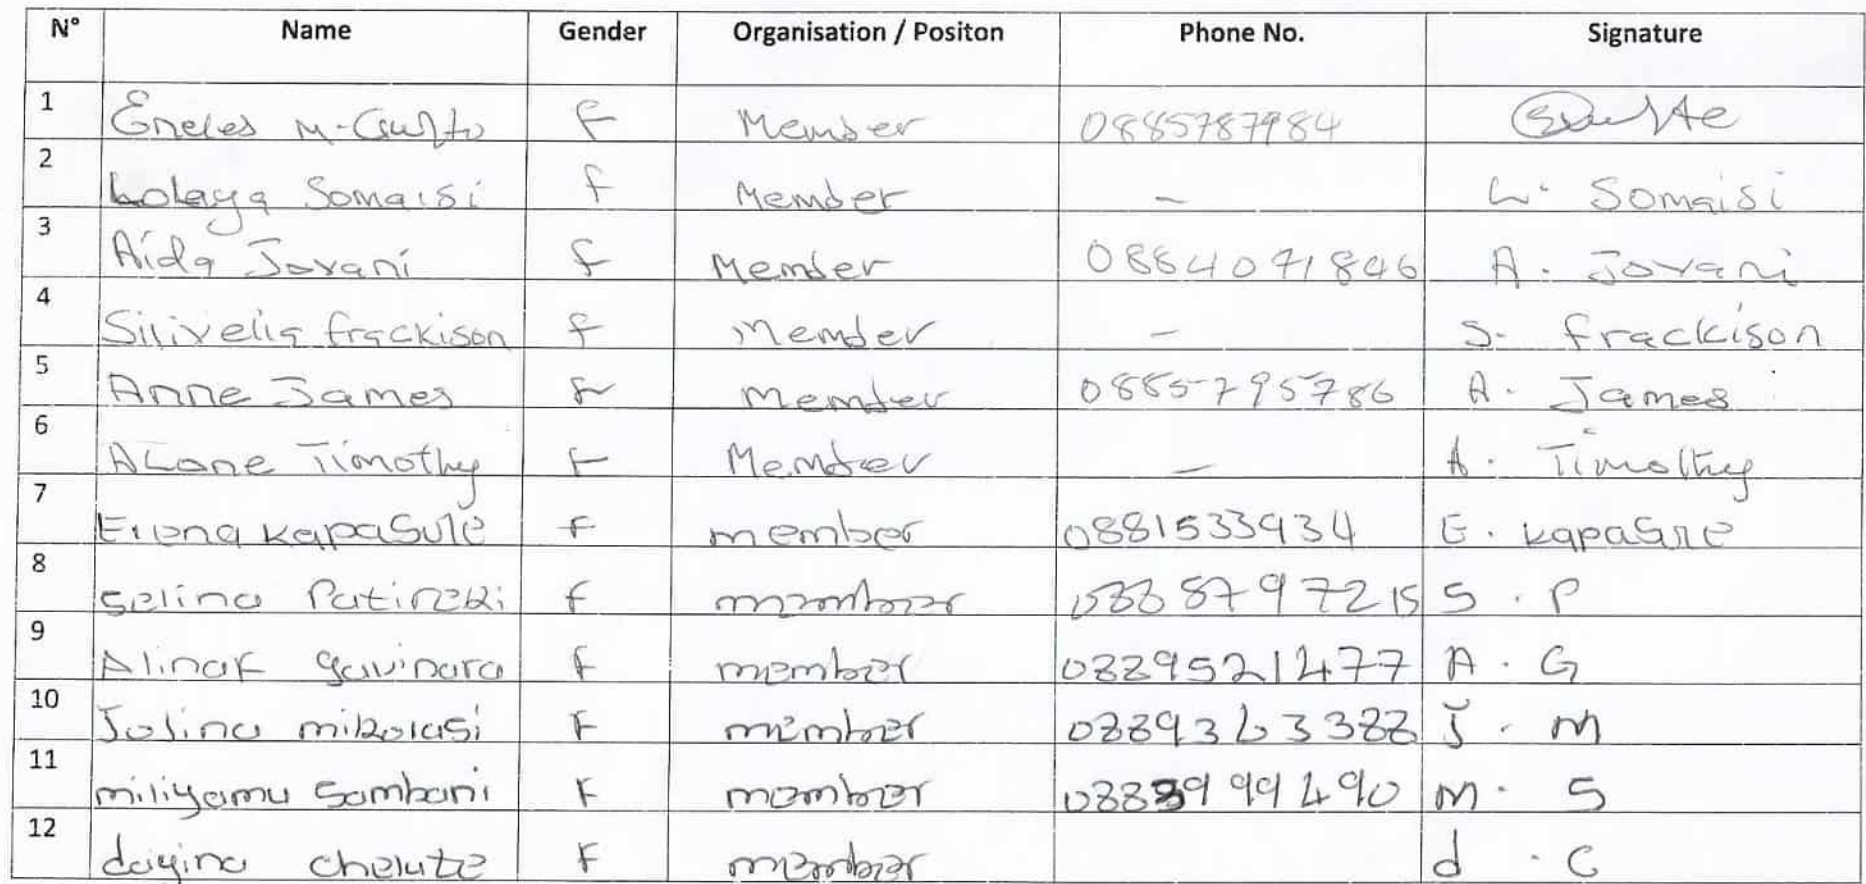 N° Name Gender Organisation / Positon Phone No. Signature
1 Eneles M. F Member 0885787984
2 Lolaya Somaisi f Member - L. Somaisi
3 Aida Jovani f Member 0884071846 A. Jovani
4 Silivelia frackison f Member - S. frackison
5 Anne James f Member 0885795786 A. James
6 Alone Timothy F Member - A. Timothy
7 Elena kapasule F member 0881533934 E. kapasule
8 selina f member 0888797215 S. P
9 Alinaf gavinara F member 0889521477 A. G
10 Jolina mikolasi F member 0889363388 J. M
11 miliyamu Sambani F member 0888999490 M. S
12 dayina chelute F member d. C